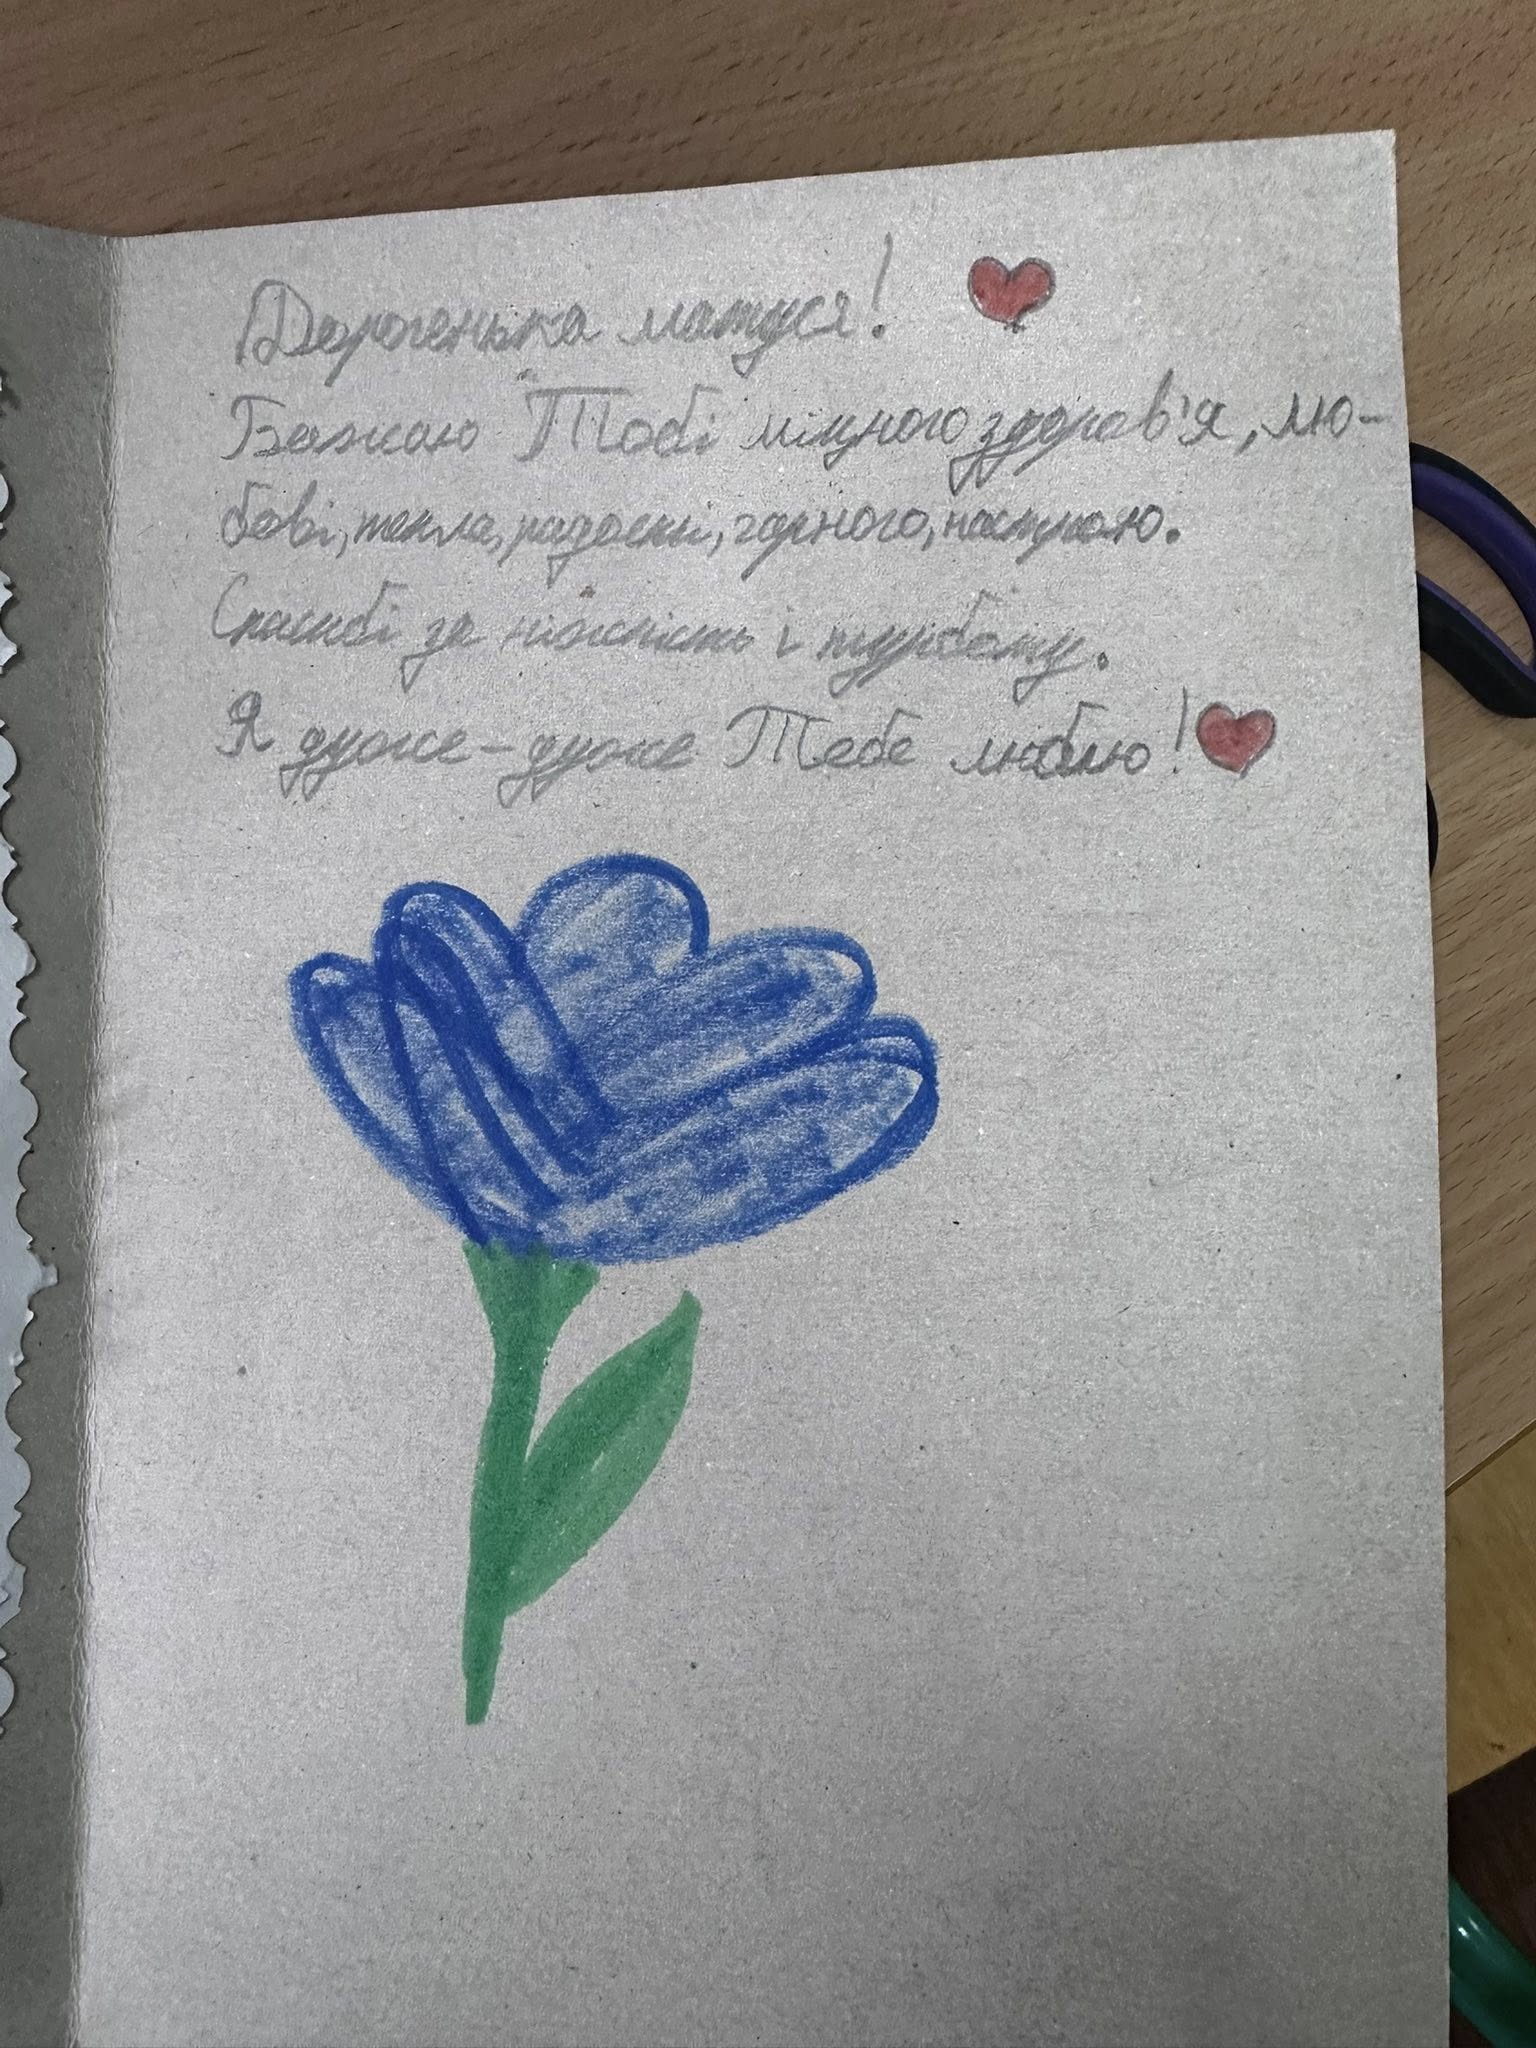 Дорогенька матуся!
Бажаю Тобі міцного здоров'я, лю-
бові, тепла, радості, гарного, настрою.
Спасибі за ніжність і турботу.
Я дуже-дуже Тебе люблю!